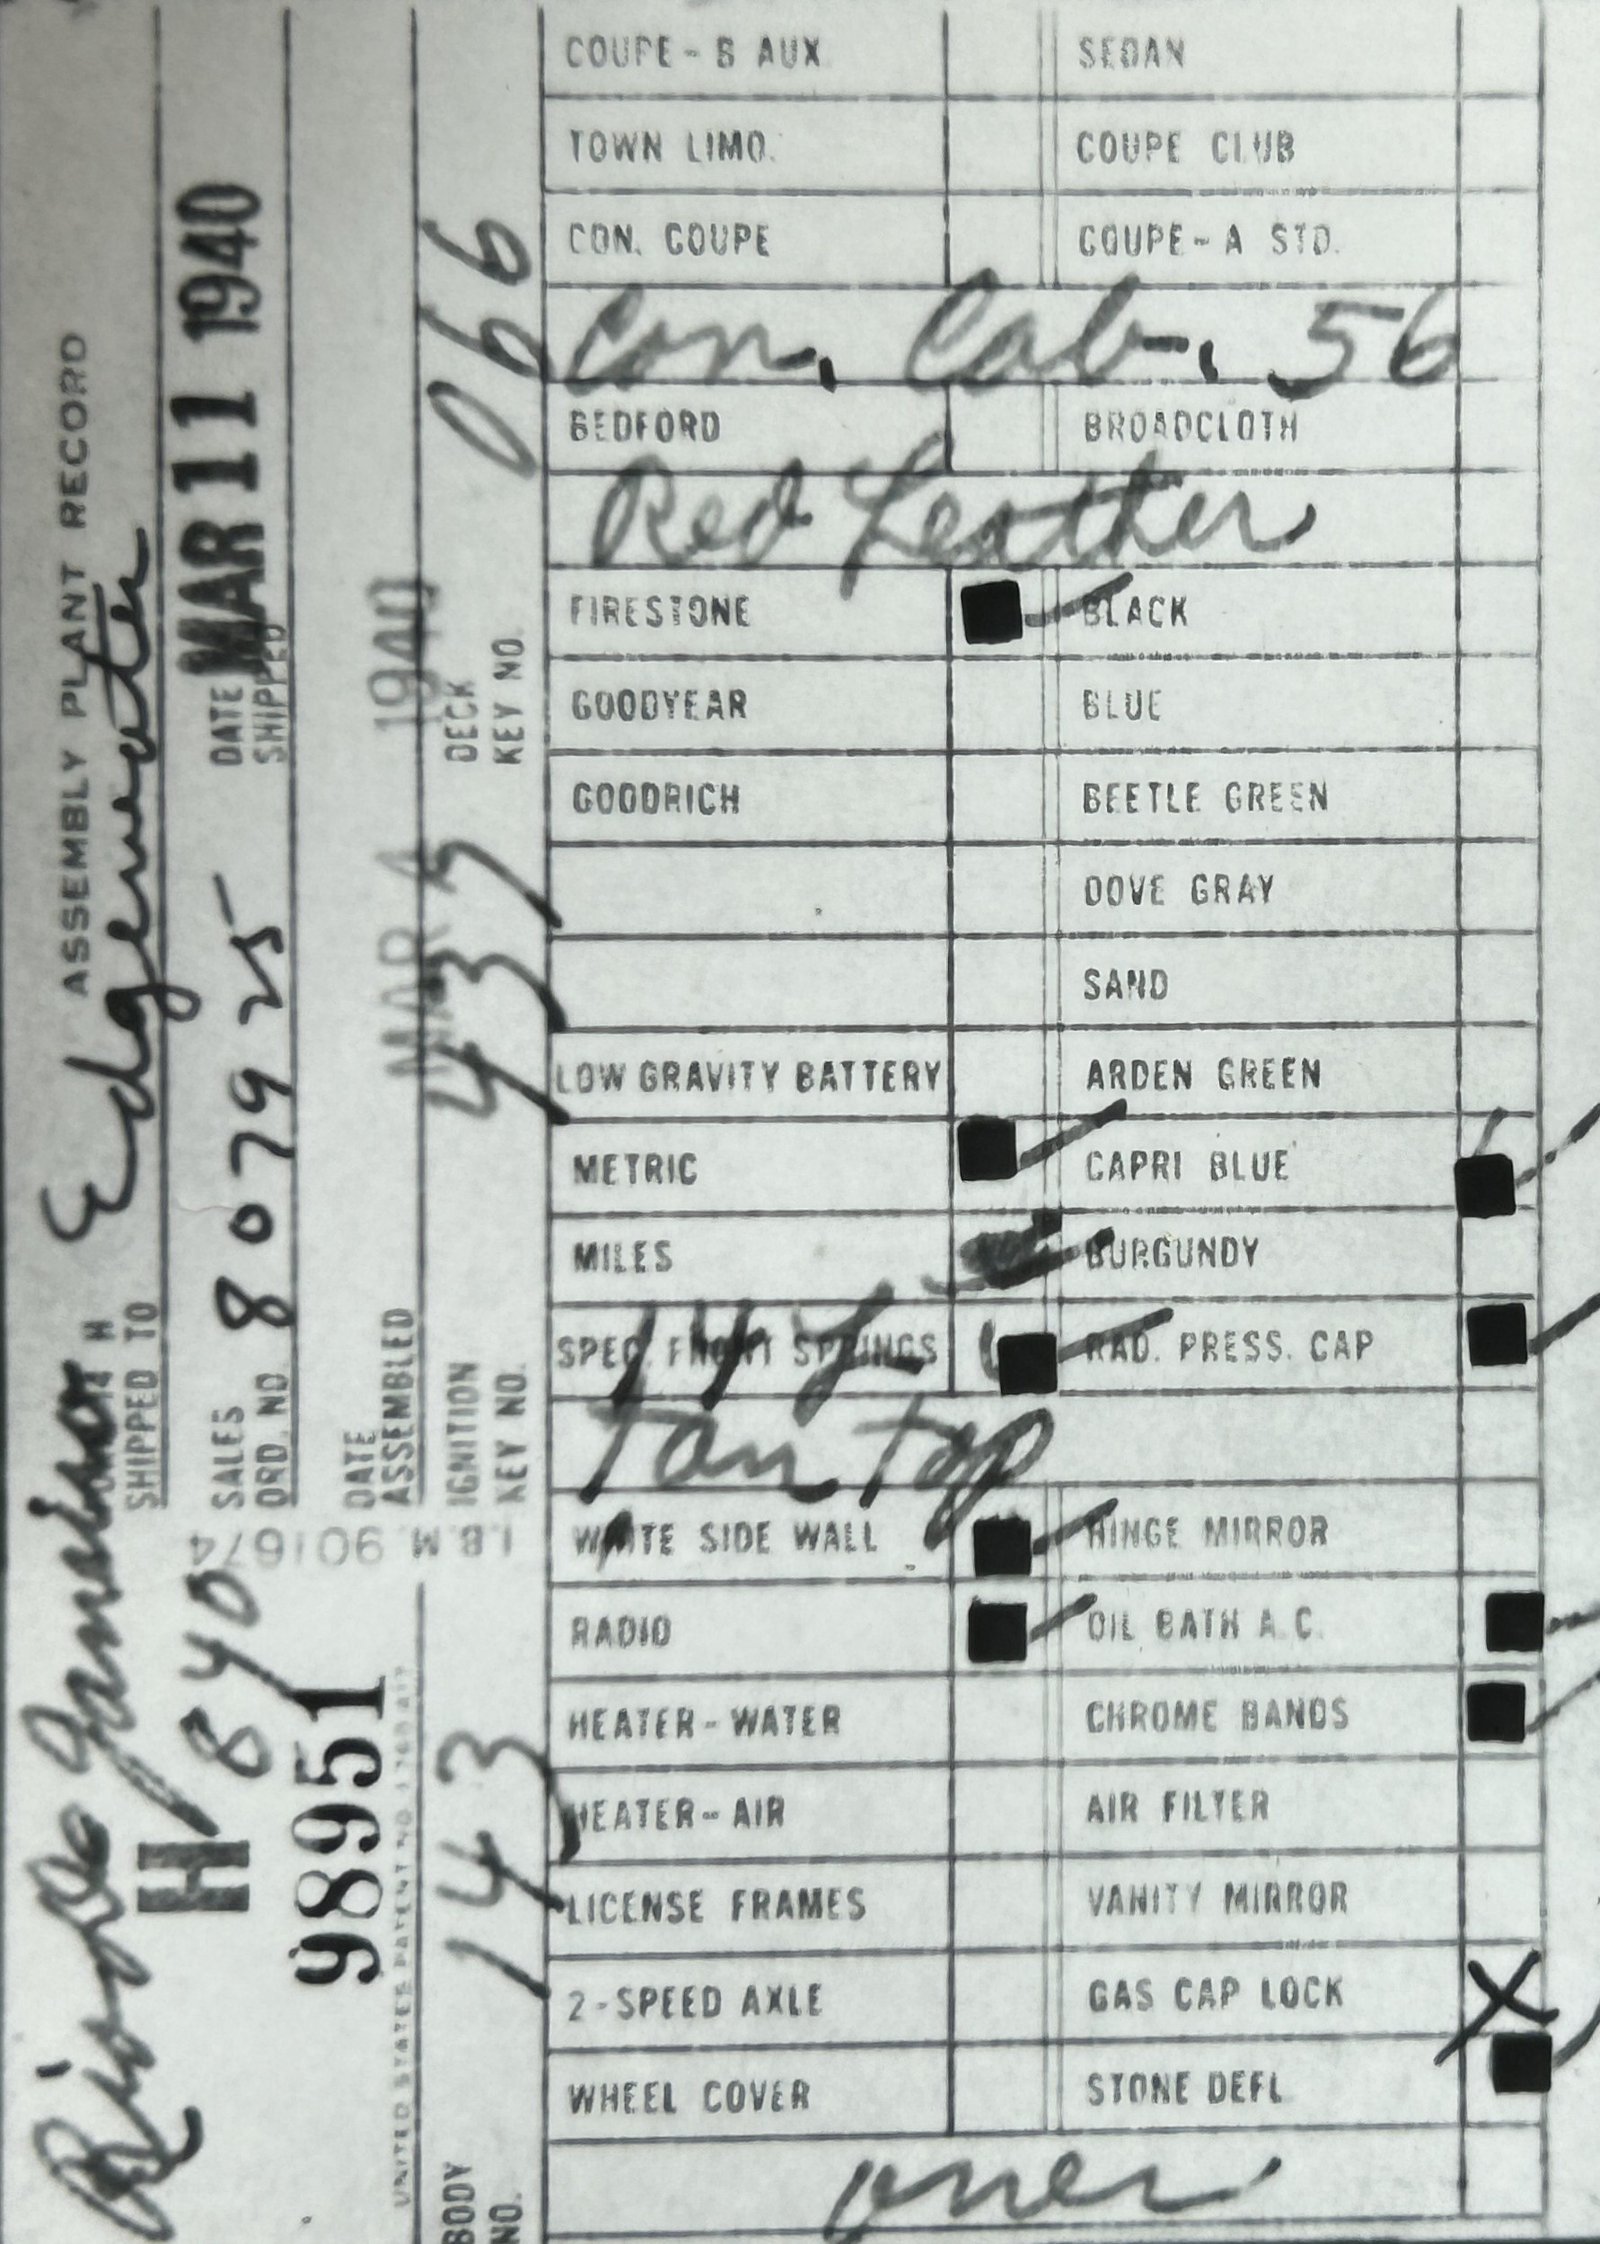 ASSEMBLY PLANT RECORD
SHIPPED TO Edgewater
H 840
98951
SALES ORD. NO. 807925
DATE SHIPPED MAR 11 1940
DATE ASSEMBLED MAR 4 1940
I.B.M. 901674
BODY NO. 143
IGNITION KEY NO. 437
DECK KEY NO. 066
COUPE - B AUX. SEDAN
TOWN LIMO. COUPE CLUB
CON. COUPE COUPE - A STD.
Con. Cab. 56
BEDFORD BROADCLOTH
Red Leather
FIRESTONE BLACK
GOODYEAR BLUE
GOODRICH BEETLE GREEN
DOVE GRAY
SAND
LOW GRAVITY BATTERY ARDEN GREEN
METRIC CAPRI BLUE
MILES BURGUNDY
SPEC. FRONT SPRINGS RAD. PRESS. CAP
Tan Top
WHITE SIDE WALL HINGE MIRROR
RADIO OIL BATH A.C.
HEATER - WATER CHROME BANDS
HEATER - AIR AIR FILTER
LICENSE FRAMES VANITY MIRROR
2 - SPEED AXLE GAS CAP LOCK X
WHEEL COVER STONE DEFL.
over